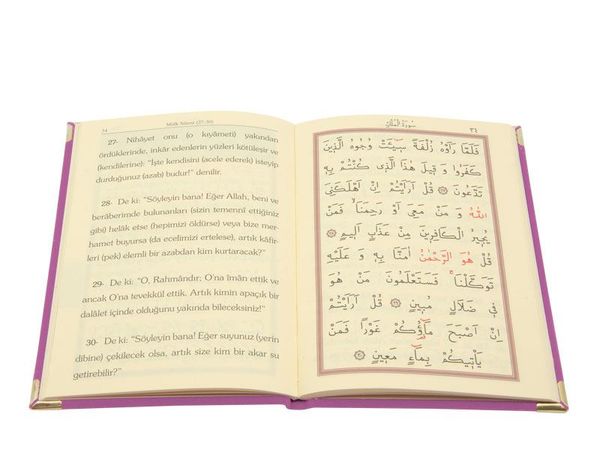 34
Mülk Sûresi (27-30)
27- Nihâyet onu (o kıyameti) yakından
gördüklerinde, inkâr edenlerin yüzleri kötüleşir ve
(kendilerine): “İşte kendisini (acele ederek) isteyip
durduğunuz (azab) budur!” denilir.
28- De ki: “Söyleyin bana! Eğer Allah, beni ve
berâberimde bulunanları (sizin temenni ettiğiniz
gibi) helâk etse (hepimizi öldürse) veya bize mer-
hamet buyursa (da ecelimizi ertelese), artık kâfir-
leri (pek) elemli bir azabdan kim kurtaracak?”
29- De ki: “O, Rahmândır; O'na îman ettik ve
ancak O'na tevekkül ettik. Artık kimin apaçık bir
dalâlet içinde olduğunu yakında bileceksiniz!”
30- De ki: “Söyleyin bana! Eğer suyunuz (yerin
dibine) çekilecek olsa, artık size kim bir akar su
getirebilir?”
سُورَةُ الْمُلْكِ
٣٤
فَلَمَّا رَاَوْهُ زُلْفَةً سِيـَٔتْ وُجُوهُ الَّذِينَ
كَفَرُوا وَ قِيلَ هٰذَا الَّذِى كُنْتُمْ بِهِ
تَدَّعُونَ ۞ قُلْ اَرَاَيْتُمْ اِنْ اَهْلَكَنِىَ
اللّٰهُ وَ مَنْ مَعِىَ اَوْ رَحِمَنَاۙ فَمَنْ
يُجِيرُ الْكَافِرِينَ مِنْ عَذَابٍ اَلِيمٍ ۞
قُلْ هُوَ الرَّحْمٰنُ اٰمَنَّا بِهِ وَ عَلَيْهِ
تَوَكَّلْنَاۚ فَسَتَعْلَمُونَ مَنْ هُوَ
فِى ضَلَالٍ مُبِينٍ ۞ قُلْ اَرَاَيْتُمْ
اِنْ اَصْبَحَ مَٓاؤُكُمْ غَوْرًا فَمَنْ
يَاْتِيكُمْ بِمَٓاءٍ مَعِينٍ ۞